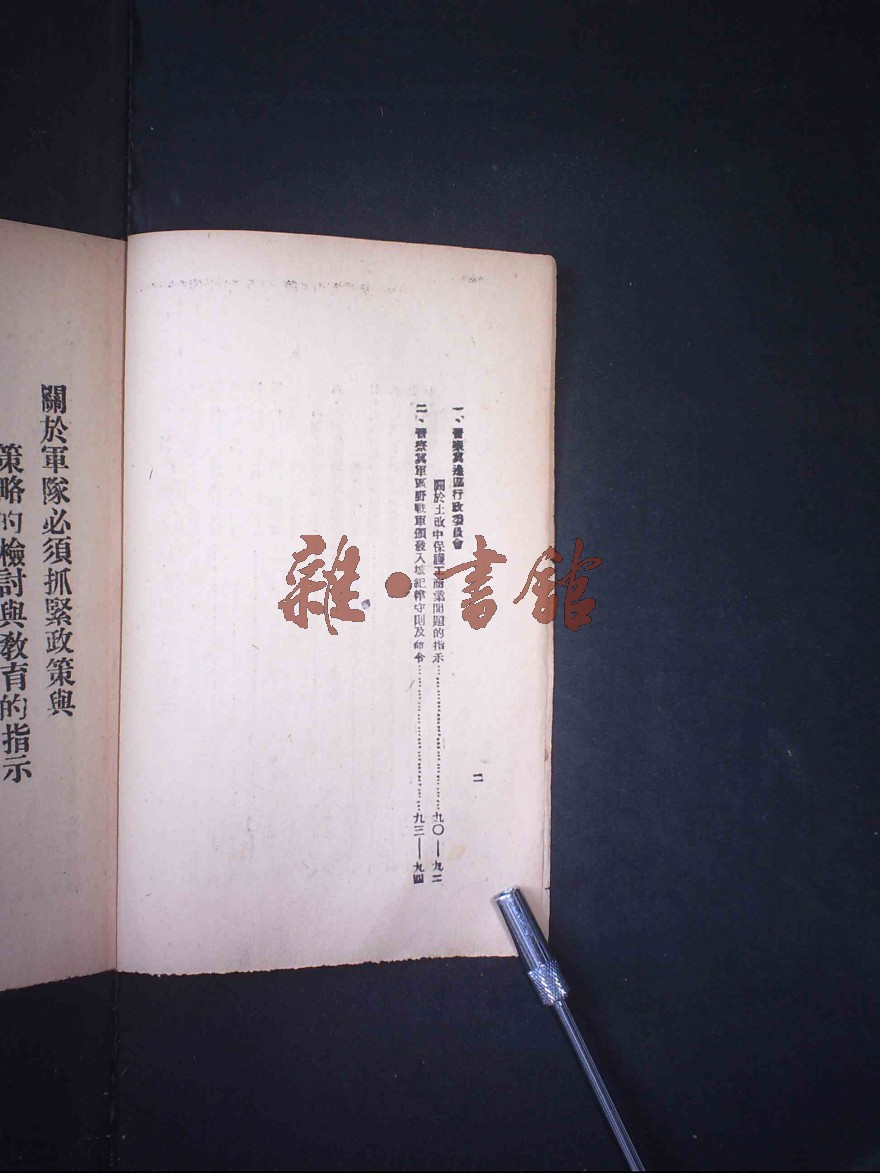 一、晋察冀邊區行政委員會
關於土改中保護工商業問題的指示……九〇——九二
二、晋察冀軍區野戰軍頒發入城紀律守則及命令……九三——九四
二
關於軍隊必須抓緊政策與
策略的檢討與教育的指示
雜·書館